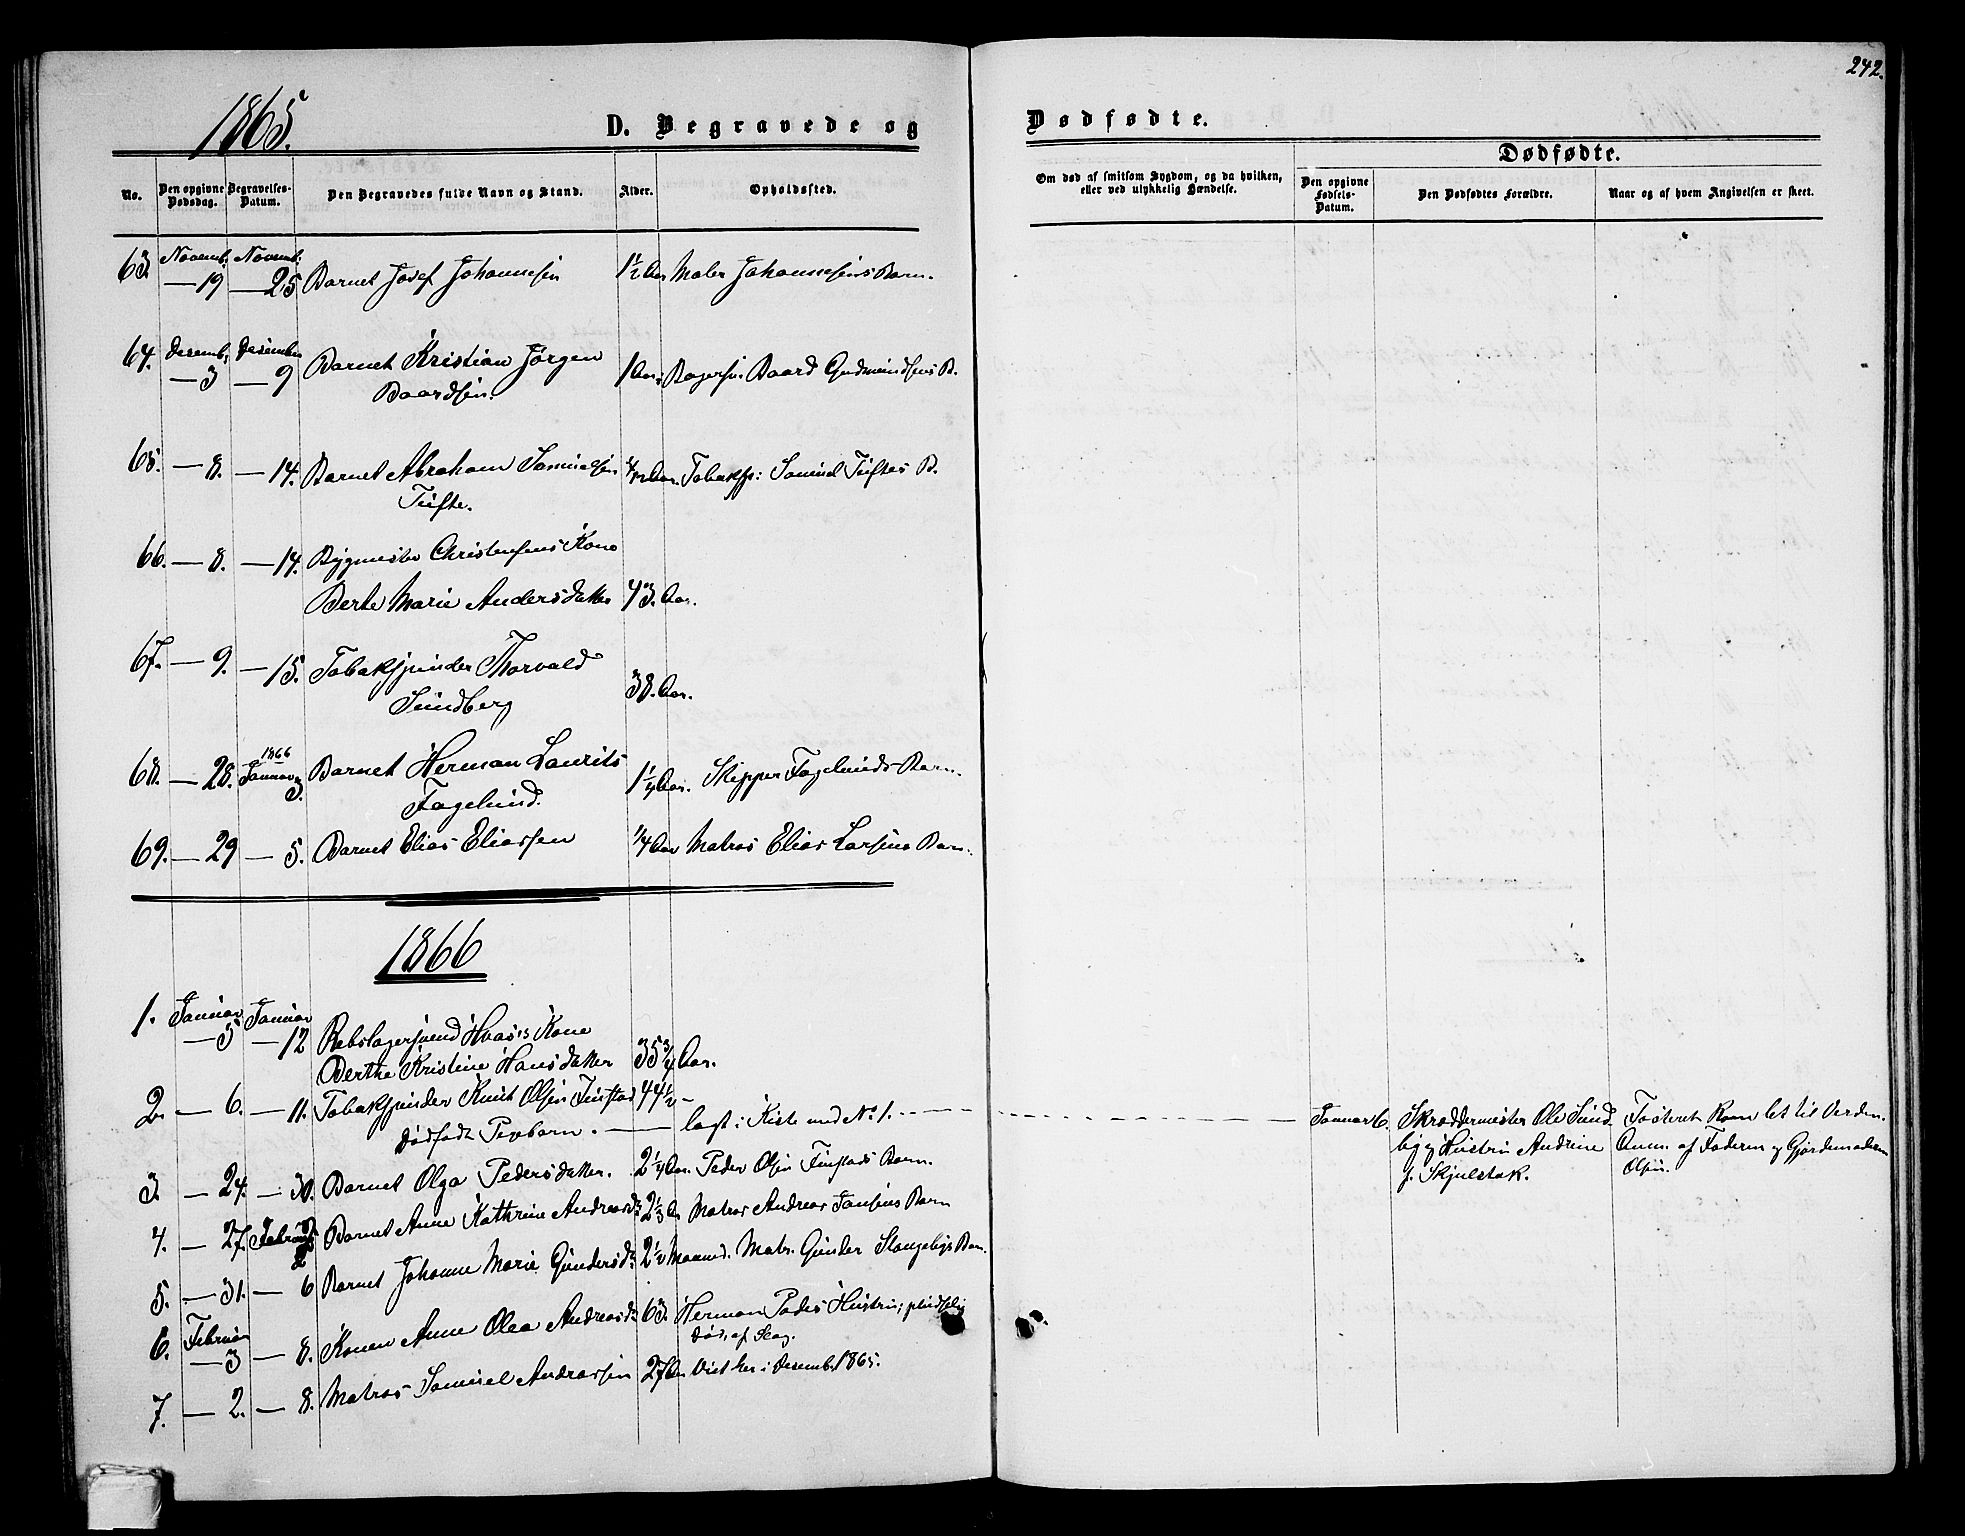 242.
1865.
D. Begravede og Dødfødte.
No.
Den opgivne Dødsdag.
Begravelses-Datum.
Den Begravedes fulde Navn og Stand.
Alder.
Opholdssted.
Om død af smitsom Sygdom, og da hvilken, eller ved ulykkelig Hændelse.
Dødfødte.
Den opgivne Fødsels-Datum.
Den Dødfødtes Forældre.
Naar og af hvem Angivelsen er skeet.
63. Novemb. 19 Novemb. 25 Barnet Josef Johannesen 1½ Aar Maler Johannesens Barn.
64. Desemb. 3 Desember 9 Barnet Kristian Jørgen 1 Aar; Baard Gudmundsens B.
Baardsen.
65. — 8. — 14. Barnet Abraham Samuelsen Aar. Tobakssp: Samuel Tuftes B.
Tufte.
66. — 8. — 14. Bygmester Christensens Kone
Berte Marie Andersdatter 43. Aar.
67. — 9. — 15. Tobakspinder Thorvald
Sundberg 38. Aar.
68. — 28. 1866 Januar 3. Barnet Herman Laurits 1¼ Aar. Skipper Fagelunds Barn.
Fagelund.
69. — 29 — 5. Barnet Elias Eliassen ¼ Aar Matros Elias Larsens Barn.
1866
1. Januar 5 Januar 12 Rebslagersvend Hvas's Kone
Berthe Kristine Hansdatter 35¾ Aar.
2. — 6. — 11. Tobakspinder Knut Olsen Finstad 44½ —
Dødfødt Pigebarn. — lagt i Kiste med No 1. — Januar 6. Skræddermester Ole Sund- Fosteret kom let til Verden.
big og Hustru Andrine Anm. af Faderen og Gjordemoderen
f. Skjulstak. Olsen.
3. — 24. — 30. Barnet Olga Pedersdatter. 2¼ Aar. Peder Olsen Finstads Barn.
4. — 27. Februar 2 Barnet Anne Kathrine Andreasdr 2⅓ A Matros Andreas Jansens Barn
5. — 31. — 6 Barnet Johanne Marie Gundersdr 2½ Maaned. Matr. Gunder Slangeligs Barn.
6. Februar 3 — 8. Konen Anne Olea Andreasdr 63. Herman Hustru; pludselig
død, af Slag.
7. — 2. — 8. Matros Samuel Andreassen 27 Aar Viet her i Desemb. 1865.